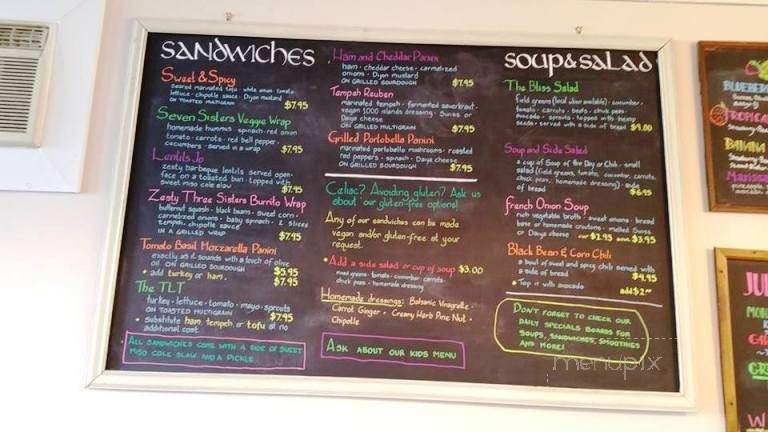 SANDWICHES
Sweet & Spicy
seared marinated tofu · white onion · tomato ·
lettuce · chipotle sauce · Dijon mustard
ON TOASTED MULTIGRAIN $7.95
Seven Sisters Veggie Wrap
homemade hummus · spinach · red onion
tomato · carrots · red bell pepper ·
cucumbers · served in a wrap $7.95
Lentils Jo
zesty barbeque lentils served open-
face on a toasted bun · topped with
sweet miso cole slaw $7.95
Zesty Three Sisters Burrito Wrap
butternut squash · black beans · sweet corn ·
carmelized onions · baby spinach · 2 slices
tempeh · chipotle sauce
IN A GRILLED WRAP $7.95
Tomato Basil Mozzarella Panini
exactly as it sounds with a touch of olive
oil ON GRILLED SOURDOUGH $5.95
• add turkey or ham · $7.95
The TLT
turkey · lettuce · tomato · mayo · sprouts
ON TOASTED MULTIGRAIN $7.95
• substitute ham, tempeh or tofu at no
additional cost.
ALL SANDWICHES COME WITH A SIDE OF SWEET
MISO COLE SLAW AND A PICKLE
Ham and Cheddar Panini
ham · cheddar cheese · carmelized
onions · Dijon mustard
ON GRILLED SOURDOUGH $7.95
Tempeh Reuben
marinated tempeh · fermented sauerkraut ·
vegan 1000 islands dressing · Swiss or
Daiya cheese
ON GRILLED MULTIGRAIN $7.95
Grilled Portobella Panini
marinated portobello mushrooms · roasted
red peppers · spinach · Daiya cheese
ON GRILLED SOURDOUGH $7.95
Celiac? Avoiding gluten? Ask us
about our gluten-free options!
Any of our sandwiches can be made
vegan and/or gluten-free at your
request.
• Add a side salad or cup of soup $3.00
mixed greens · tomato · cucumber · carrots
chick peas · homemade dressing
Homemade dressings: Balsamic Vinaigrette ·
Carrot Ginger · Creamy Herb Pine Nut ·
Chipotle
ASK ABOUT OUR KIDS MENU
SOUP & SALAD
The Bliss Salad
field greens (local when available) · cucumber ·
tomato · carrots · beets · chick peas ·
avocado · sprouts · topped with hemp
seeds · served with a side of bread $9.00
Soup and Side Salad
a cup of Soup of the Day or Chili · small
salad (field greens, tomato, cucumber, carrots,
chick peas, homemade dressing) · side
of bread $6.95
French Onion Soup
rich vegetable broth · sweet onions · bread
base or homemade croutons · melted Swiss
or Daiya cheese cup $2.95 bowl $3.95
Black Bean & Corn Chili
a bowl of sweet and spicy chili served with
a side of bread $4.95
• Top it with avocado add $2.00
DON'T FORGET TO CHECK OUR
DAILY SPECIALS BOARDS FOR
SOUPS, SANDWICHES, SMOOTHIES
AND MORE!
menupix
BLUEBER
TROPICA
BANANA
Marissa
JUI